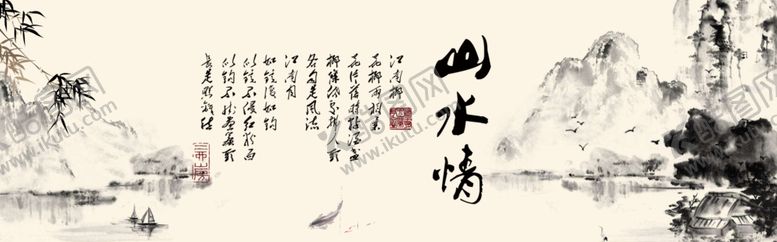 山水情
江南柳
花柳两相柔
花片落时黏酒盏
柳条低处拂人头
各自是风流
江南月
如镜复如钩
似镜不侵红粉面
似钩不挂画帘头
长是照离愁
www.ikutu.com